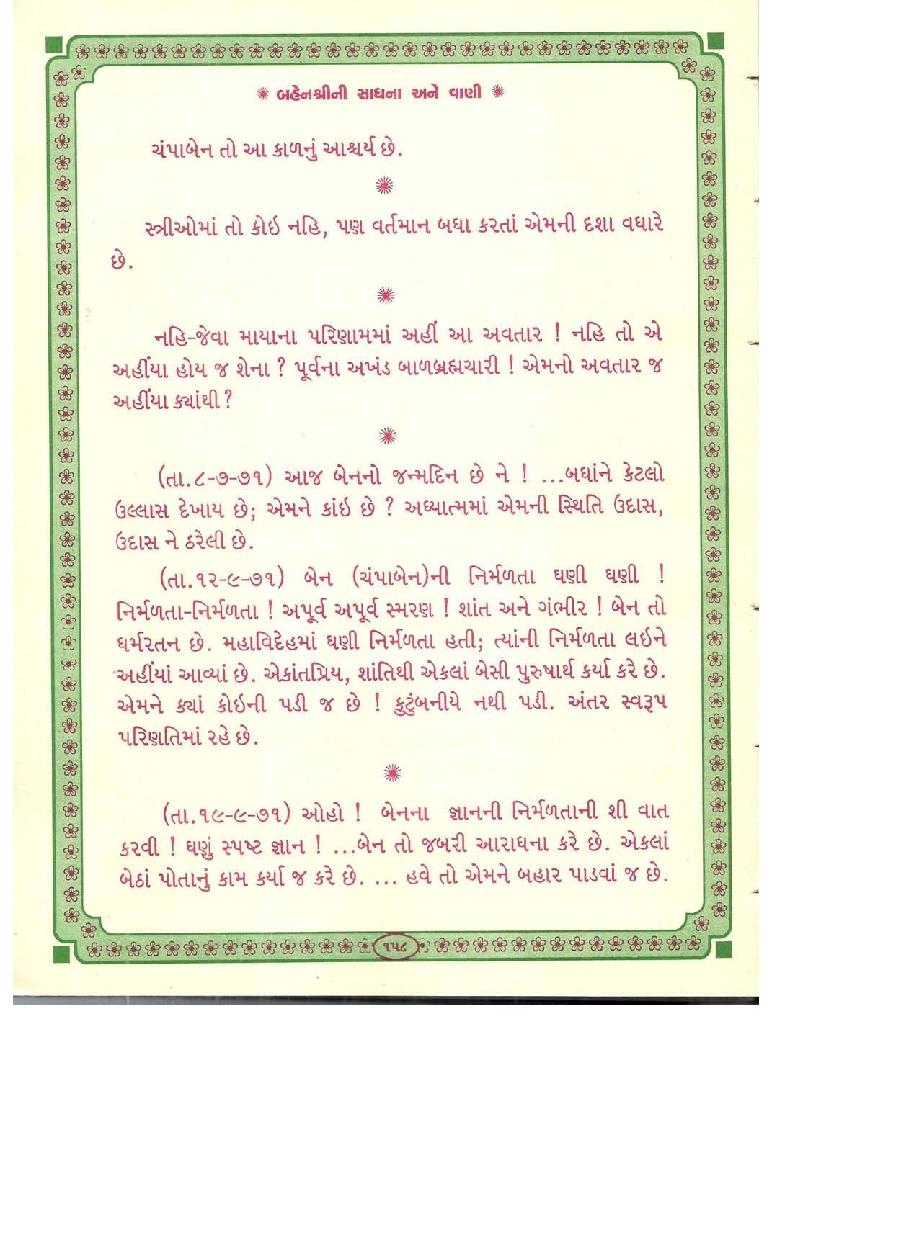 બહેનશ્રીની સાધના અને વાણી
ચંપાબેન તો આ કાળનું આશ્ચર્ય છે.
સ્ત્રીઓમાં તો કોઇ નહિ, પણ વર્તમાન બધા કરતાં એમની દશા વધારે
છે.
નહિ-જેવા માયાના પરિણામમાં અહીં આ અવતાર ! નહિ તો એ
અહીંયા હોય જ શેના ? પૂર્વના અખંડ બાળબ્રહ્મચારી ! એમનો અવતાર જ
અહીંયા ક્યાંથી ?
(તા.૮-૭-૭૧) આજ બેનનો જન્મદિન છે ને ! ...બધાંને કેટલો
ઉલ્લાસ દેખાય છે; એમને કાંઇ છે ? અધ્યાત્મમાં એમની સ્થિતિ ઉદાસ,
ઉદાસ ને ઠરેલી છે.
(તા.૧૨-૯-૭૧) બેન (ચંપાબેન)ની નિર્મળતા ઘણી ઘણી !
નિર્મળતા-નિર્મળતા ! અપૂર્વ અપૂર્વ સ્મરણ ! શાંત અને ગંભીર ! બેન તો
ધર્મરતન છે. મહાવિદેહમાં ઘણી નિર્મળતા હતી; ત્યાંની નિર્મળતા લઇને
અહીંયાં આવ્યાં છે. એકાંતપ્રિય, શાંતિથી એકલાં બેસી પુરુષાર્થ કર્યા કરે છે.
એમને ક્યાં કોઇની પડી જ છે ! કુટુંબનીયે નથી પડી. અંતર સ્વરૂપ
પરિણતિમાં રહે છે.
(તા.૧૯-૯-૭૧) ઓહો ! બેનના જ્ઞાનની નિર્મળતાની શી વાત
કરવી ! ઘણું સ્પષ્ટ જ્ઞાન ! ...બેન તો જબરી આરાધના કરે છે. એકલાં
બેઠાં પોતાનું કામ કર્યા જ કરે છે. ... હવે તો એમને બહાર પાડવાં જ છે.
૧૫૮